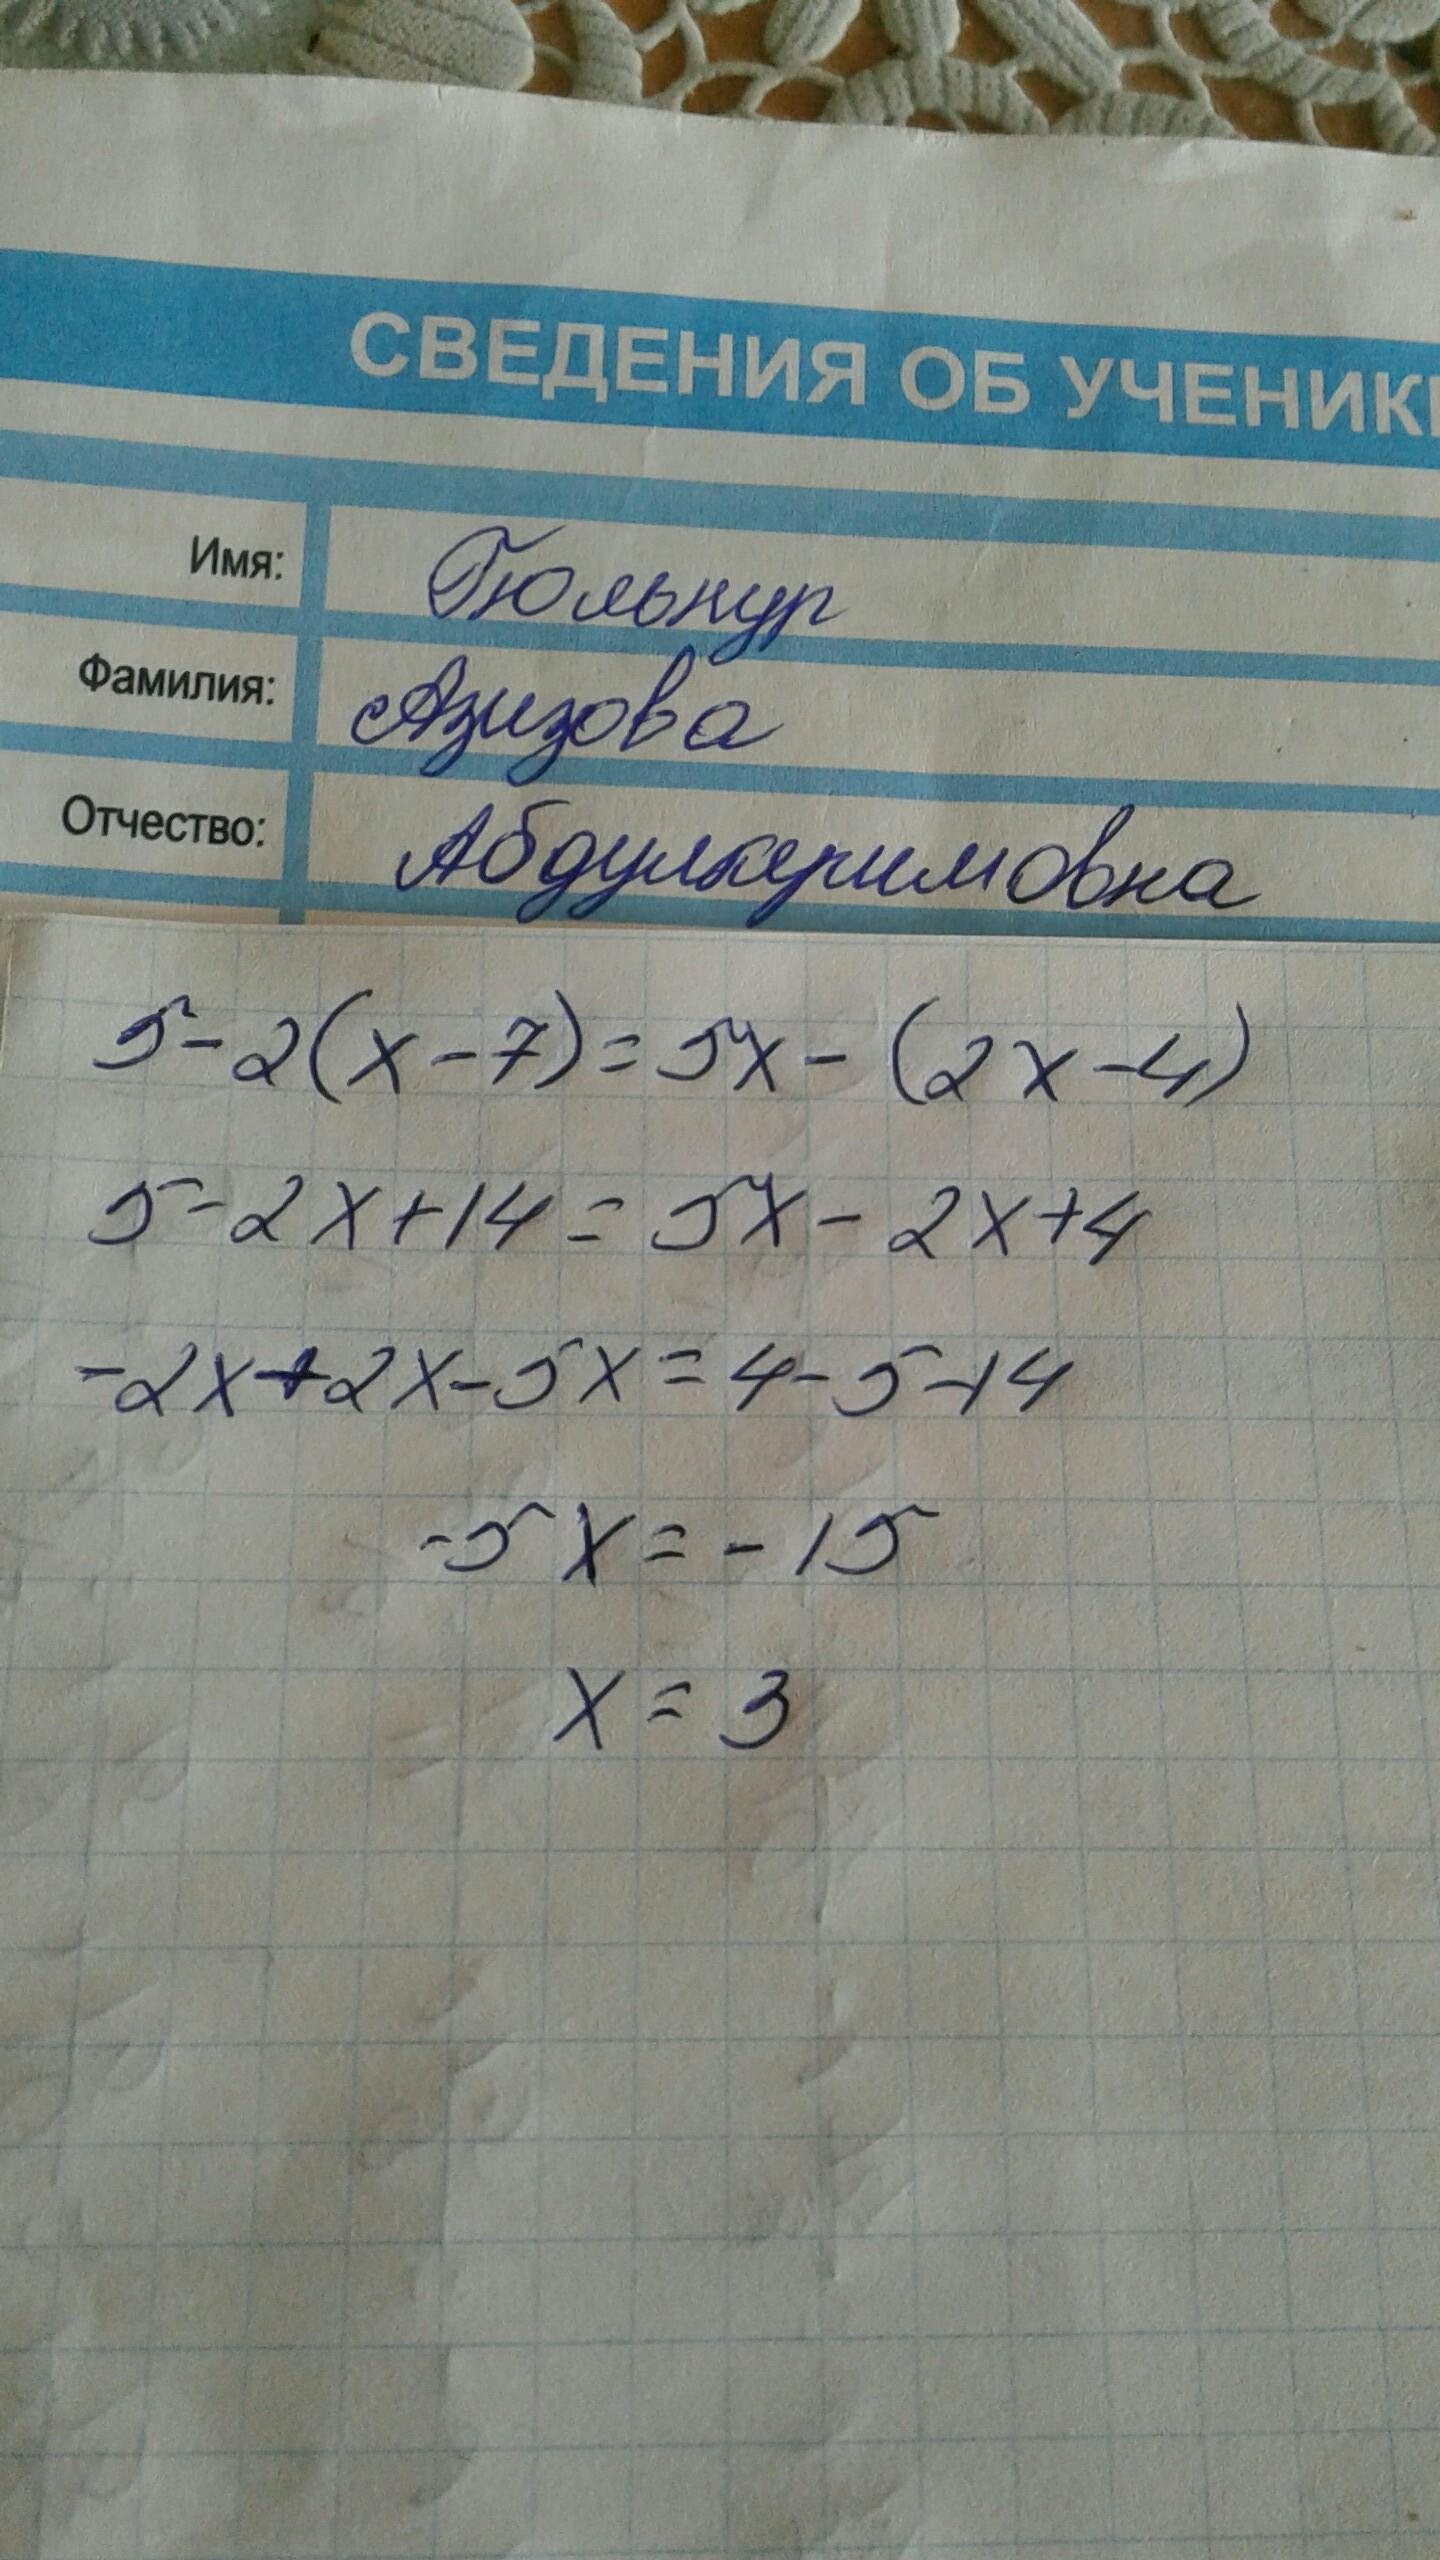 СВЕДЕНИЯ ОБ УЧЕНИК
Имя: Гюльнур
Фамилия: Азизова
Отчество: Абдулкеримовна
5-2(x-7)=5x-(2x-4)
5-2x+14=5x-2x+4
-2x+2x-5x=4-5-14
-5x=-15
x=3